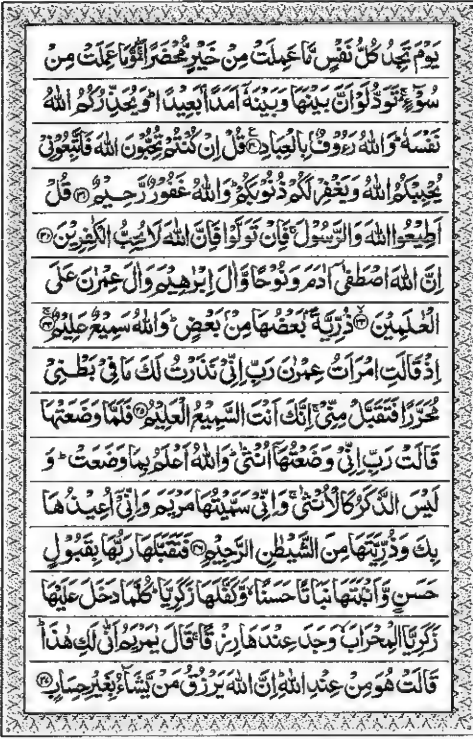 يَوْمَ تَجِدُ كُلُّ نَفْسٍ مَّا عَمِلَتْ مِنْ خَيْرٍ مُّحْضَرًا ۛۖۚ وَّمَا عَمِلَتْ مِنْ
سُوْٓءٍ ۛۚ تَوَدُّ لَوْ اَنَّ بَيْنَهَا وَبَيْنَهٗۤ اَمَدًۢا بَعِيْدًا ؕ وَيُحَذِّرُكُمُ اللّٰهُ
نَفْسَهٗ ؕ وَاللّٰهُ رَءُوْفٌۢ بِالْعِبَادِ ۟﴿۳۰﴾ قُلْ اِنْ كُنْتُمْ تُحِبُّوْنَ اللّٰهَ فَاتَّبِعُوْنِيْ
يُحْبِبْكُمُ اللّٰهُ وَيَغْفِرْ لَكُمْ ذُنُوْبَكُمْ ؕ وَاللّٰهُ غَفُوْرٌ رَّحِيْمٌ ﴿۳۱﴾ قُلْ
اَطِيْعُوا اللّٰهَ وَالرَّسُوْلَ ۚ فَاِنْ تَوَلَّوْا فَاِنَّ اللّٰهَ لَا يُحِبُّ الْكٰفِرِيْنَ ﴿۳۲﴾
اِنَّ اللّٰهَ اصْطَفٰۤى اٰدَمَ وَنُوْحًا وَّاٰلَ اِبْرٰهِيْمَ وَاٰلَ عِمْرٰنَ عَلَى
الْعٰلَمِيْنَ ۙ﴿۳۳﴾ ذُرِّيَّةًۢ بَعْضُهَا مِنْۢ بَعْضٍ ؕ وَاللّٰهُ سَمِيْعٌ عَلِيْمٌ ۚ﴿۳۴﴾
اِذْ قَالَتِ امْرَاَتُ عِمْرٰنَ رَبِّ اِنِّيْ نَذَرْتُ لَكَ مَا فِيْ بَطْنِيْ
مُحَرَّرًا فَتَقَبَّلْ مِنِّيْ ۚ اِنَّكَ اَنْتَ السَّمِيْعُ الْعَلِيْمُ ﴿۳۵﴾ فَلَمَّا وَضَعَتْهَا
قَالَتْ رَبِّ اِنِّيْ وَضَعْتُهَاۤ اُنْثٰى ؕ وَاللّٰهُ اَعْلَمُ بِمَا وَضَعَتْ ؕ وَ
لَيْسَ الذَّكَرُ كَالْاُنْثٰى ۚ وَاِنِّيْ سَمَّيْتُهَا مَرْيَمَ وَاِنِّيْۤ اُعِيْذُهَا
بِكَ وَذُرِّيَّتَهَا مِنَ الشَّيْطٰنِ الرَّجِيْمِ ﴿۳۶﴾ فَتَقَبَّلَهَا رَبُّهَا بِقَبُوْلٍ
حَسَنٍ وَّاَنْۢبَتَهَا نَبَاتًا حَسَنًا ۙ وَّكَفَّلَهَا زَكَرِيَّا ؕ كُلَّمَا دَخَلَ عَلَيْهَا
زَكَرِيَّا الْمِحْرَابَ ۙ وَجَدَ عِنْدَهَا رِزْقًا ۚ قَالَ يٰمَرْيَمُ اَنّٰى لَكِ هٰذَا ؕ
قَالَتْ هُوَ مِنْ عِنْدِ اللّٰهِ ؕ اِنَّ اللّٰهَ يَرْزُقُ مَنْ يَّشَآءُ بِغَيْرِ حِسَابٍ ﴿۳۷﴾